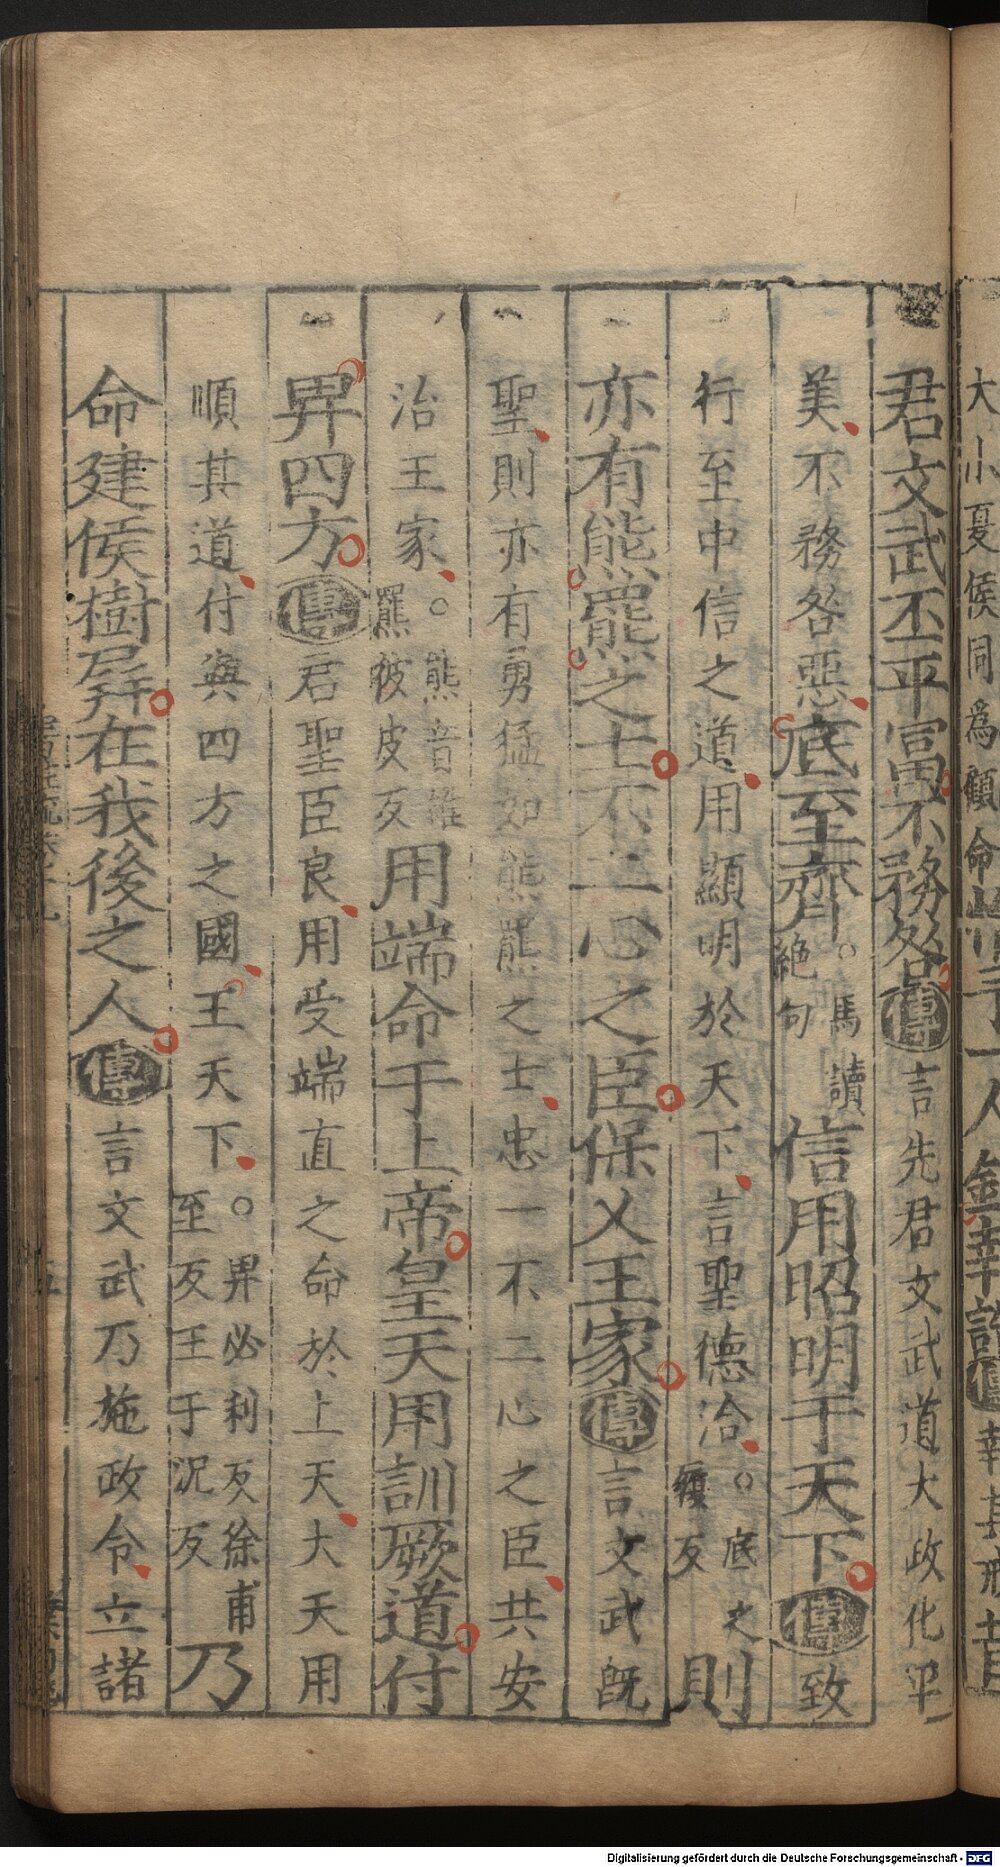 大小夏侯同爲顧命
君文武丕平富不務咎傳言先君文武道大政化平
美不務咎惡底至齊。馬讀絶句信用昭明于天下傳致
行至中信之道用顯明於天下言聖德洽。底之履反則
亦有熊羆之士不二心之臣保乂王家傳言文武既
聖則亦有勇猛如熊羆之士忠一不二心之臣共安
治王家。熊音雄羆彼皮反用端命于上帝皇天用訓厥道付
畀四方傳君聖臣良用受端直之命於上天大天用
順其道付與四方之國王天下。畀必利反徐甫至反王于況反乃
命建侯樹屛在我後之人傳言文武乃施政令立諸
Digitalisierung gefördert durch die Deutsche Forschungsgemeinschaft - DFG